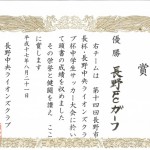 賞
優勝
長野FCガーフ
右チームは第十四回長野市
長杯・長野中央ライオンズクラ
ブ杯中学生サッカー大会に於い
て頭書の成績を収めました
その栄誉と健闘を讃え ここ
に賞します
平成十七年八月二十一日
長野中央ライオンズクラブ